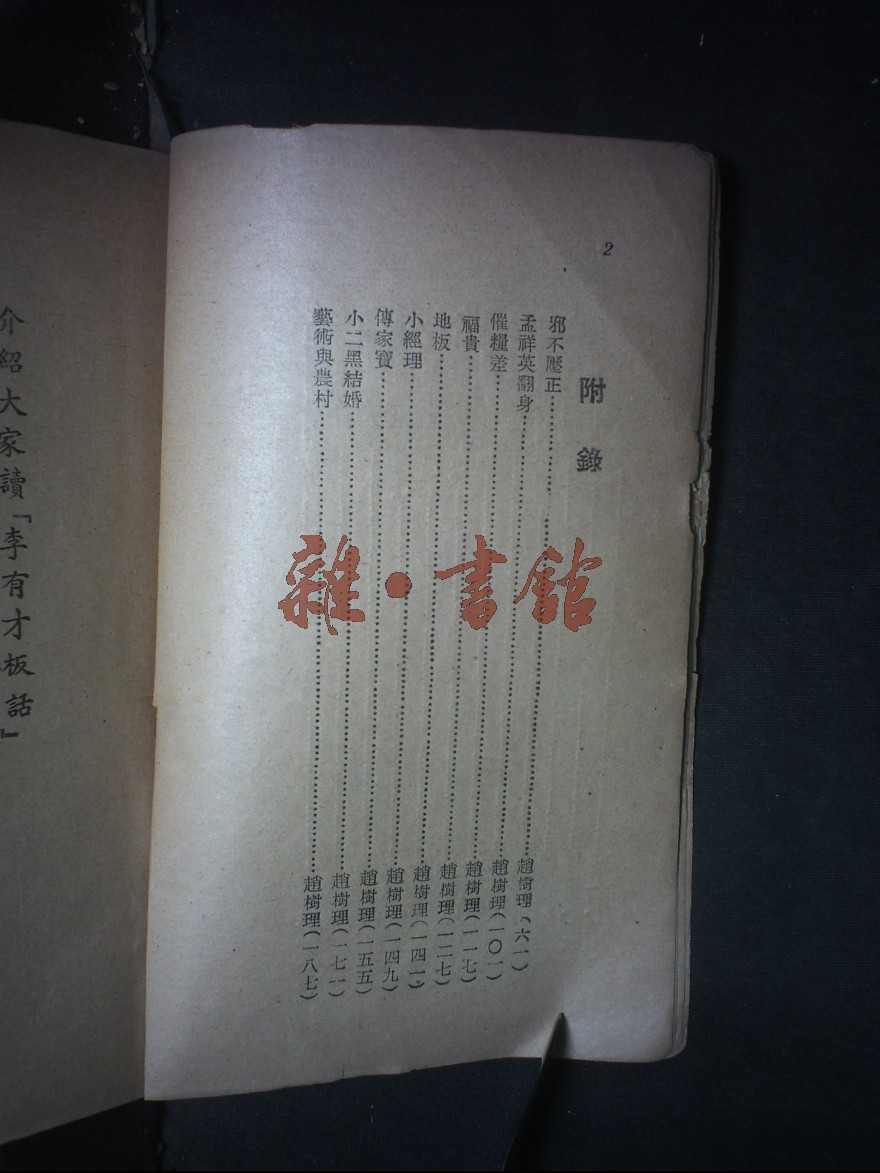 2
附錄
邪不壓正……趙樹理(六一)
孟祥英翻身……趙樹理(一〇一)
催糧差……趙樹理(一一七)
福貴……趙樹理(一二七)
地板……趙樹理(一四一)
小經理……趙樹理(一四九)
傳家寶……趙樹理(一五五)
小二黑結婚……趙樹理(一七一)
藝術與農村……趙樹理(一八七)
介紹大家讀「李有才板話」
雜·書館